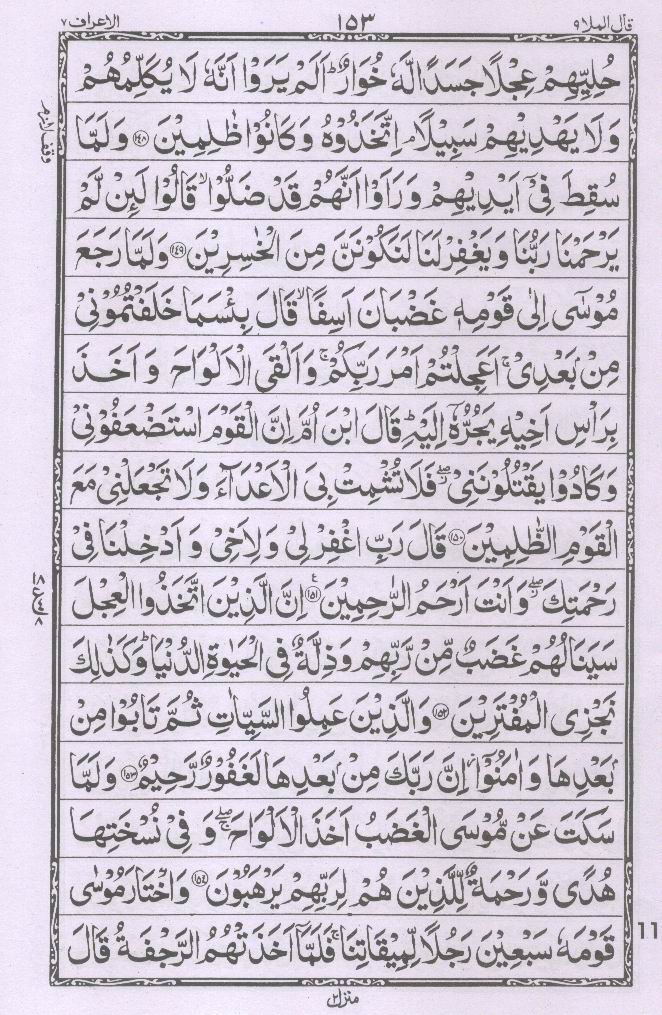 قال الملا ٩ ١٥٣ الاعراف ٧
حُلِيِّهِمْ عِجْلًا جَسَدًا لَّهٗ خُوَارٌ ؕ اَلَمْ يَرَوْا اَنَّهٗ لَا يُكَلِّمُهُمْ
وَلَا يَهْدِيْهِمْ سَبِيْلًا ۘ اِتَّخَذُوْهُ وَكَانُوْا ظٰلِمِيْنَ ﴿۱۴۸﴾ وَلَمَّا
سُقِطَ فِيْۤ اَيْدِيْهِمْ وَرَاَوْا اَنَّهُمْ قَدْ ضَلُّوْا ۙ قَالُوْا لَىِٕنْ لَّمْ
يَرْحَمْنَا رَبُّنَا وَيَغْفِرْ لَنَا لَنَكُوْنَنَّ مِنَ الْخٰسِرِيْنَ ﴿۱۴۹﴾ وَلَمَّا رَجَعَ
مُوْسٰۤى اِلٰى قَوْمِهٖ غَضْبَانَ اَسِفًا ۙ قَالَ بِئْسَمَا خَلَفْتُمُوْنِيْ
مِنْۢ بَعْدِيْ ۚ اَعَجِلْتُمْ اَمْرَ رَبِّكُمْ ۚ وَاَلْقَى الْاَلْوَاحَ وَاَخَذَ
بِرَاْسِ اَخِيْهِ يَجُرُّهٗۤ اِلَيْهِ ؕ قَالَ ابْنَ اُمَّ اِنَّ الْقَوْمَ اسْتَضْعَفُوْنِيْ
وَكَادُوْا يَقْتُلُوْنَنِيْ ۖ فَلَا تُشْمِتْ بِيَ الْاَعْدَآءَ وَلَا تَجْعَلْنِيْ مَعَ
الْقَوْمِ الظّٰلِمِيْنَ ﴿۱۵۰﴾ قَالَ رَبِّ اغْفِرْ لِيْ وَلِاَخِيْ وَاَدْخِلْنَا فِيْ
رَحْمَتِكَ ۖ وَاَنْتَ اَرْحَمُ الرّٰحِمِيْنَ ﴿۱۵۱﴾ اِنَّ الَّذِيْنَ اتَّخَذُوا الْعِجْلَ
سَيَنَالُهُمْ غَضَبٌ مِّنْ رَّبِّهِمْ وَذِلَّةٌ فِي الْحَيٰوةِ الدُّنْيَا ؕ وَكَذٰلِكَ
نَجْزِي الْمُفْتَرِيْنَ ﴿۱۵۲﴾ وَالَّذِيْنَ عَمِلُوا السَّيِّاٰتِ ثُمَّ تَابُوْا مِنْۢ
بَعْدِهَا وَاٰمَنُوْۤا ۫ اِنَّ رَبَّكَ مِنْۢ بَعْدِهَا لَغَفُوْرٌ رَّحِيْمٌ ﴿۱۵۳﴾ وَلَمَّا
سَكَتَ عَنْ مُّوْسَى الْغَضَبُ اَخَذَ الْاَلْوَاحَ ۖۚ وَفِيْ نُسْخَتِهَا
هُدًى وَّرَحْمَةٌ لِّلَّذِيْنَ هُمْ لِرَبِّهِمْ يَرْهَبُوْنَ ﴿۱۵۴﴾ وَاخْتَارَ مُوْسٰى
قَوْمَهٗ سَبْعِيْنَ رَجُلًا لِّمِيْقَاتِنَا ۚ فَلَمَّاۤ اَخَذَتْهُمُ الرَّجْفَةُ قَالَ
منزل ٢
وقف لازم
11